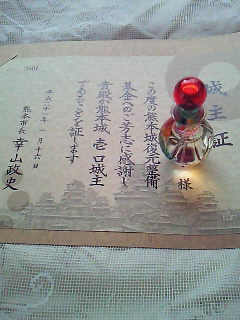 城主証
様
この度の熊本城復元整備
基金へのご芳志に感謝し
貴殿が熊本城 壱口城主
であることを証します
平成二十一年 一月十六日
熊本市長 幸山政史